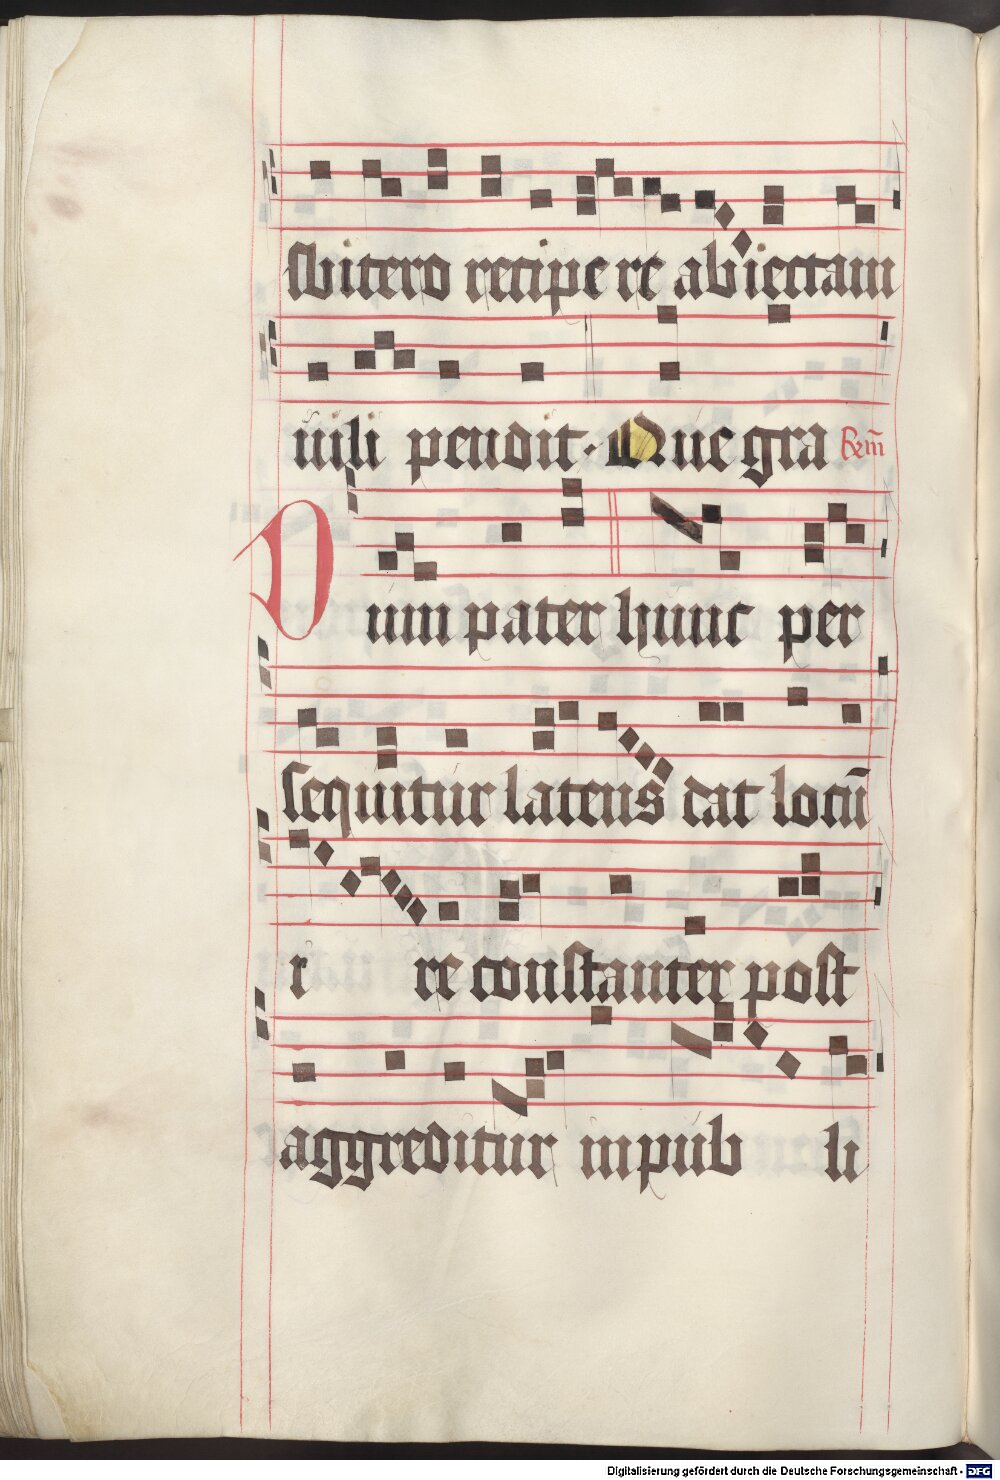 sbitero recipere abiectam
uili pendit · Que gra R̃em̃
Dum pater hunc per
sequitur latens dat locū
r re constanter post
aggreditur in pub li
Digitalisierung gefördert durch die Deutsche Forschungsgemeinschaft - DFG